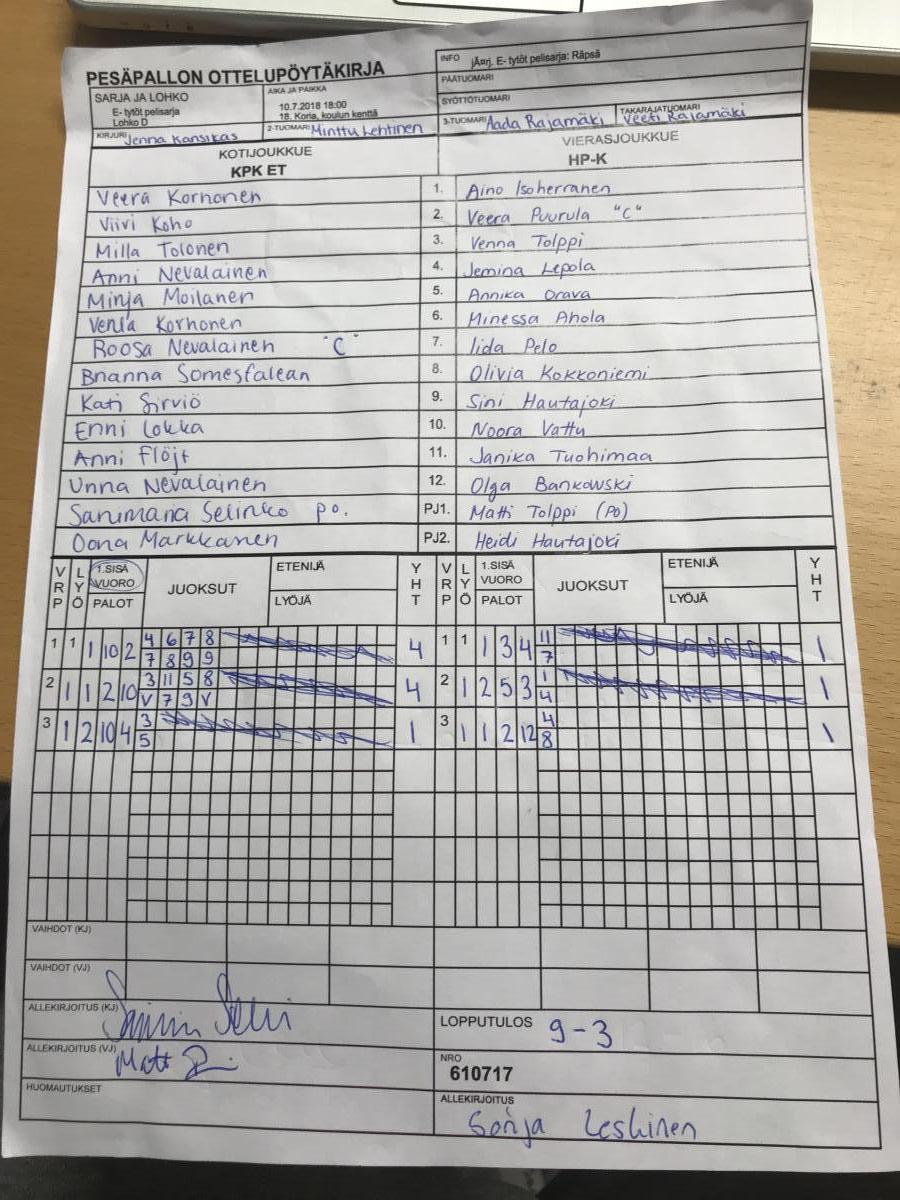 PESÄPALLON OTTELUPÖYTÄKIRJA
INFO jÄ¤rj. E- tytöt pelisarja: Räpsä
PÄÄTUOMARI
SYÖTTÖTUOMARI
SARJA JA LOHKO
E- tytöt pelisarja
Lohko D
AIKA JA PAIKKA
10.7.2018 18:00
18. Koria, koulun kenttä
KIRJURI Jenna Kansikas
2-TUOMARI Minttu Lehtinen
3-TUOMARI Aada Rajamäki
TAKARAJATUOMARI Veeti Rajamäki
KOTIJOUKKUE
KPK ET
VIERASJOUKKUE
HP-K
Veera Korhonen 1. Aino Isoherranen
Viivi Koho 2. Veera Puurula "C"
Milla Tolonen 3. Venna Tolppi
Anni Nevalainen 4. Jemina Lepola
Minja Moilanen 5. Annika Orava
Venla Korhonen 6. Minessa Ahola
Roosa Nevalainen "C" 7. Iida Pelo
Brianna Somesfalean 8. Olivia Kokkoniemi
Kati Sirviö 9. Sini Hautajoki
Enni Lokka 10. Noora Vattu
Anni Flöjt 11. Janika Tuohimaa
Unna Nevalainen 12. Olga Bankowski
Selinko po. PJ1. Matti Tolppi (PO)
Oona Markkanen PJ2. Heidi Hautajoki
VRP LYÖ 1.SISÄ VUORO PALOT JUOKSUT ETENIJÄ LYÖJÄ YHT VRP LYÖ 1.SISÄ VUORO PALOT JUOKSUT ETENIJÄ LYÖJÄ YHT
1 1 1 10 2 4 6 7 8 4 1 1 1 3 4 11 1
7 8 9 9 7
2 1 1 2 10 3 11 5 8 4 2 1 2 5 3 1 1
V 7 9 V 4
3 1 2 10 4 3 1 3 1 1 2 12 4 1
5 8
VAIHDOT (KJ)
VAIHDOT (VJ)
ALLEKIRJOITUS (KJ)
LOPPUTULOS 9-3
ALLEKIRJOITUS (VJ)
NRO
610717
HUOMAUTUKSET
ALLEKIRJOITUS
Sonja Leskinen